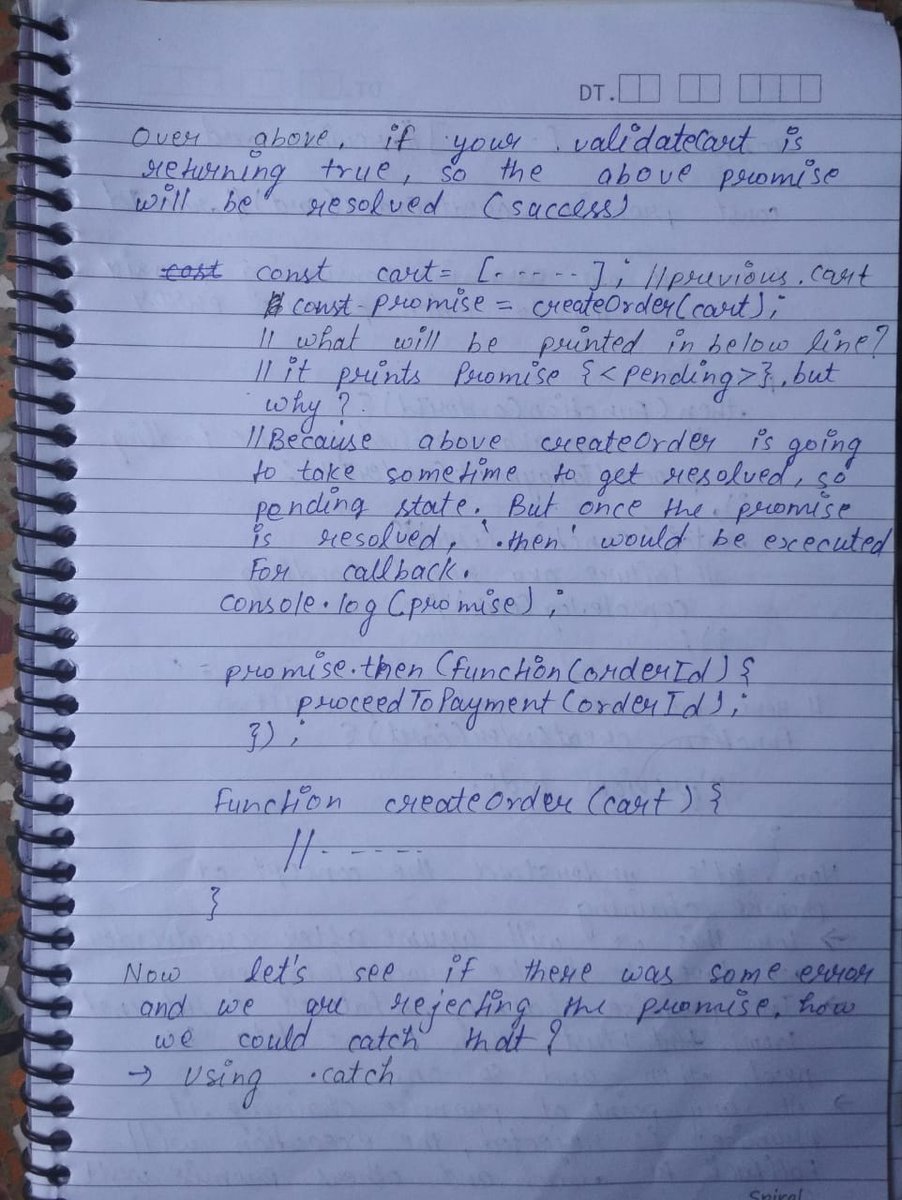 DT.
Over above, if your validateCart is
returning true, so the above promise
will be resolved (success)
cost const cart = [. - - - -]; //previous cart
const promise = createOrder(cart);
// what will be printed in below line?
// it prints Promise {<pending>}, but
why?
//Because above createOrder is going
to take sometime to get resolved, so
pending state. But once the promise
is resolved, '.then' would be executed
For callback.
console.log(promise);
promise.then(function(orderId) {
proceedToPayment(orderId);
});
function createOrder(cart) {
//- - - - - -
}
Now let's see if there was some error
and we are rejecting the promise, how
we could catch that?
→ Using .catch